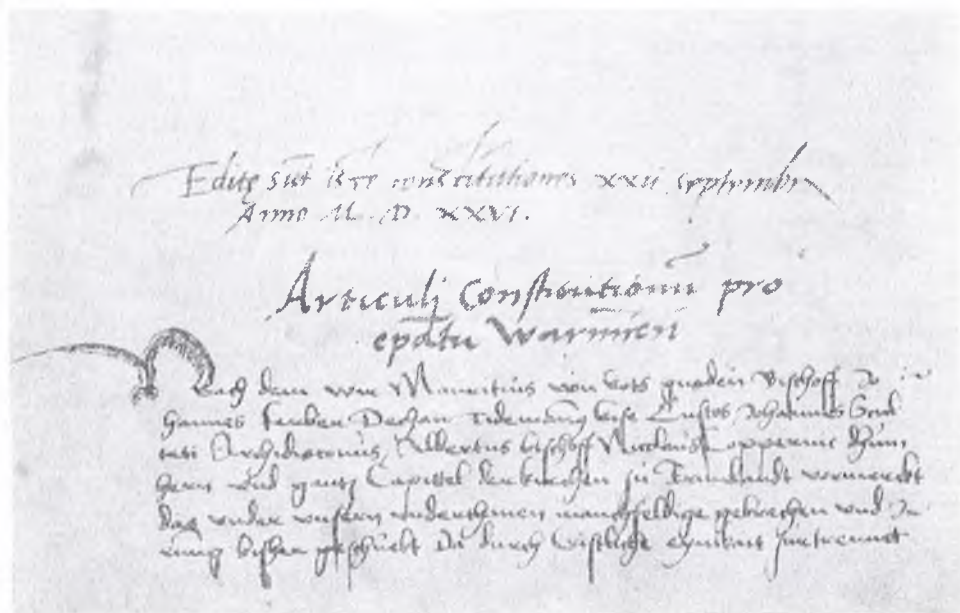 Editę sūt istę constitutiones xxii septembris
Anno M. D. XXVI.
Articulj Constitutionū pro
epātu Warmień
Nach dem wir Mauritius von gots gnaden Bischoff Jo
hannes ferber Dechan Tidemanū Gise Custos Johannes Scul
teti Archidiaconus, Albertus bischoff Nicolaus Coppernic Thum
hern vnd gantz Capittel der kirchen zu Ermlandt vormerckt
das vnder vnsern vnderthanen manchfeldige gebrechen vnd
bisher geschickt Da durch